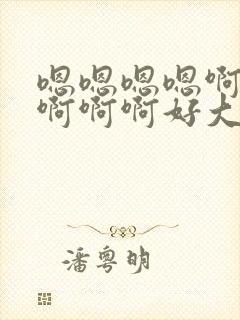 嗯嗯嗯嗯啊
啊啊啊好大
潘粤明